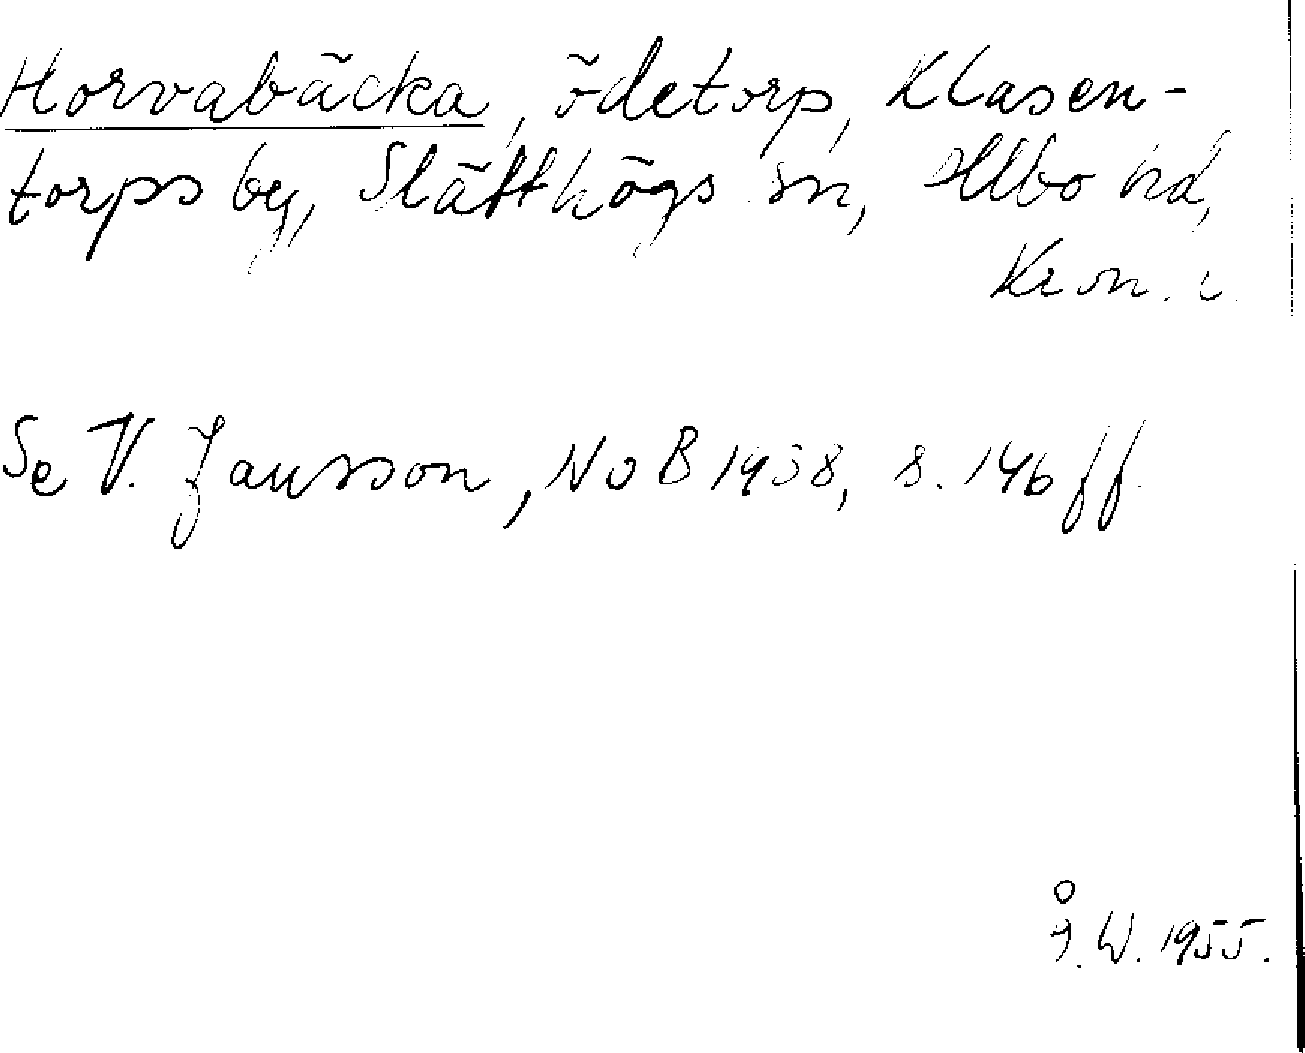 Horvabäcka, ödetorp, Klasen-
torps by, Slätthögs sn, Allbo hd,
Kron. l.
Se V. Jansson, NoB 1938, s. 146 ff.
Å. W. 1955.